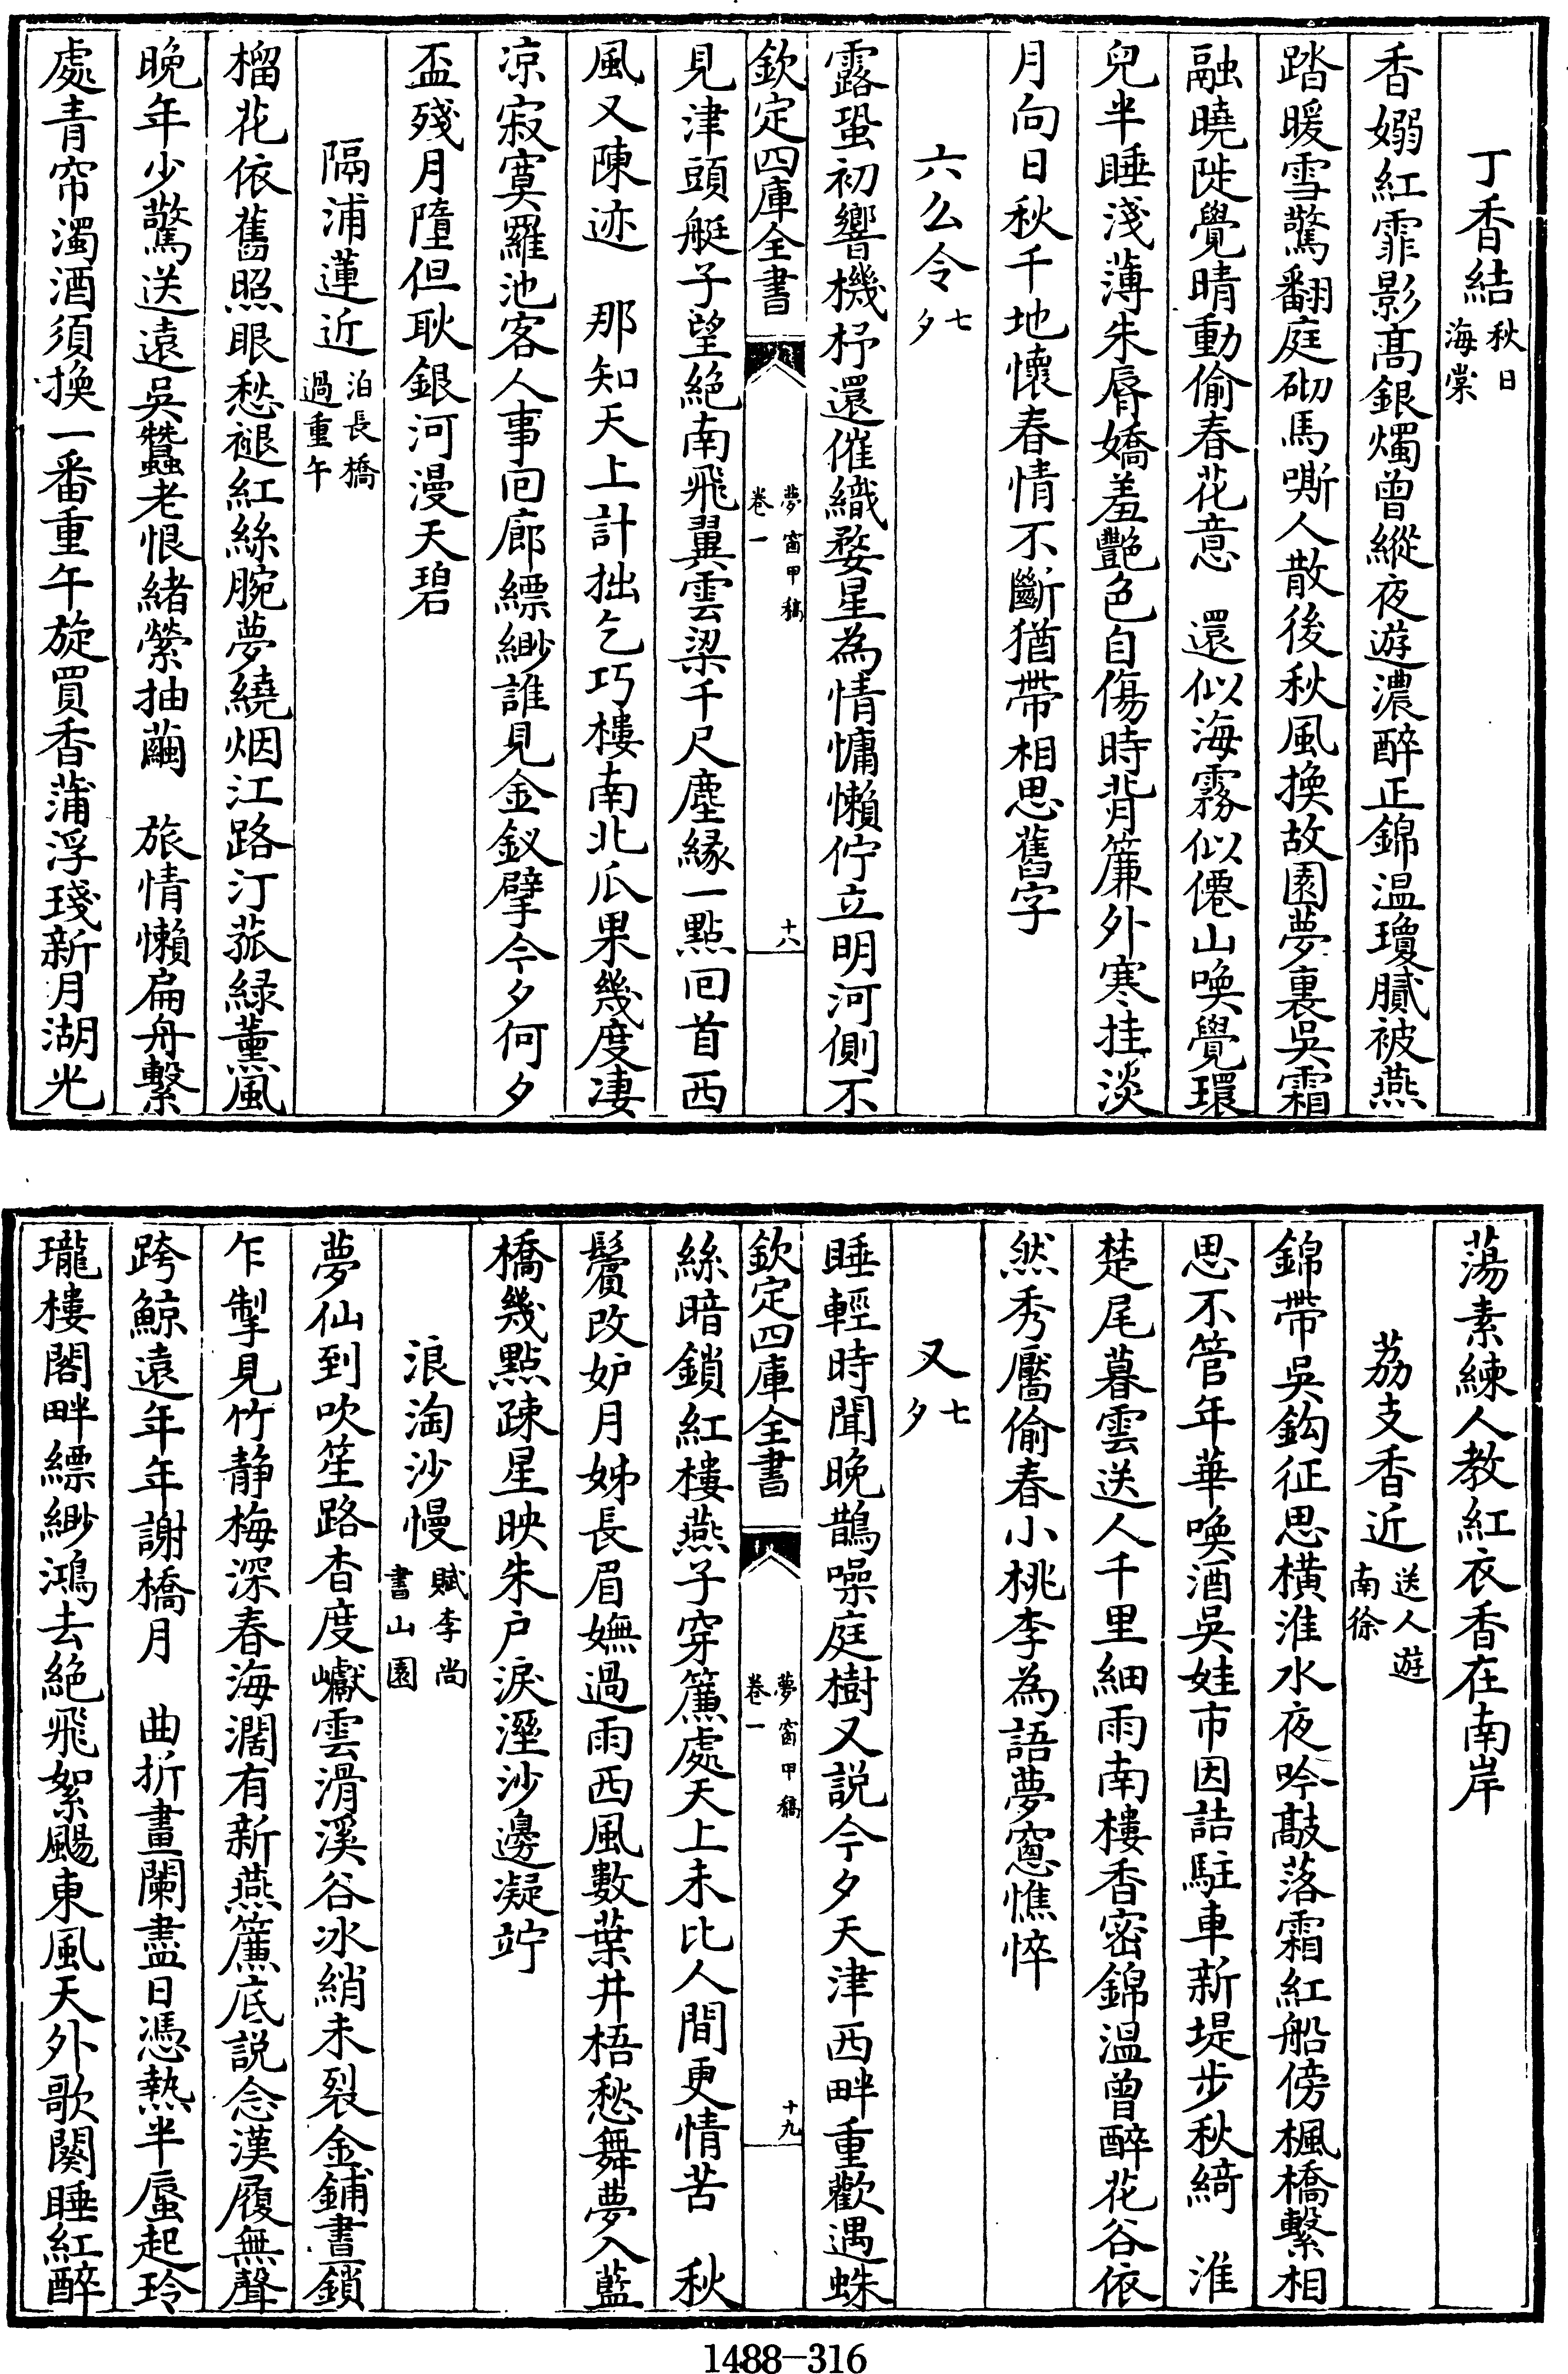 丁香結 秋日海棠
香嫋紅霏影高銀燭曾縱夜遊濃醉正錦温瓊膩被燕
踏暖雪驚翻庭砌馬嘶人散後秋風換故園夢裏吳霜
融曉陡覺晴動偷春花意　還似海霧似僊山喚覺環
兒半睡淺薄朱脣嬌羞艷色自傷時背簾外寒挂淡
月向日秋千地懷春情不斷猶帶相思舊字
六么令 七夕
露蛩初響機杼還催織婺星為情慵懶佇立明河側不
欽定四庫全書　夢窗甲稿卷一　十八
見津頭艇子望絕南飛翼雲梁千尺塵緣一點回首西
風又陳迹　那知天上計拙乞巧樓南北瓜果幾度凄
凉寂寞羅池客人事回廊縹緲誰見金釵擘今夕何夕
盃殘月墮但耿銀河漫天碧
隔浦蓮近 泊長橋過重午
榴花依舊照眼愁褪紅絲腕夢繞烟江路汀菰緑薰風
晚年少驚送遠吳蠶老恨緒縈抽繭　旅情懶扁舟繫
處青帘濁酒須換一番重午旋買香蒲浮琖新月湖光
蕩素練人教紅衣香在南岸
荔支香近 送人遊南徐
錦帶吳鈎征思橫淮水夜吟敲落霜紅船傍楓橋繫相
思不管年華喚酒吳娃市因詰駐車新堤步秋綺　淮
楚尾暮雲送人千里細雨南樓香密錦温曾醉花谷依
然秀靨偷春小桃李為語夢窻憔悴
又 七夕
睡輕時聞晚鵲噪庭樹又説今夕天津西畔重歡遇蛛
欽定四庫全書　夢窗甲稿卷一　十九
絲暗鎖紅樓燕子穿簾處天上未比人間更情苦　秋
鬢改妒月姊長眉嫵過雨西風數葉井梧愁舞夢入藍
橋幾點疎星映朱戶淚溼沙邊凝竚
浪淘沙慢 賦李尚書山園
夢仙到吹笙路杳度巘雲滑溪谷冰綃未裂金鋪晝鎖
乍掣見竹静梅深春海濶有新燕簾底説念漢履無聲
跨鯨遠年年謝橋月　曲折畫闌盡日憑熱半蜃起玲
瓏樓閣畔縹緲鴻去絕飛絮颺東風天外歌闋睡紅醉
1488-316